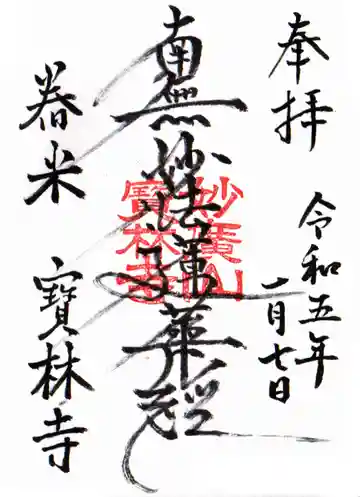 奉拝
令和五年
一月七日
南無妙法蓮華経
妙廣山
寶林寺
舂米 寶林寺